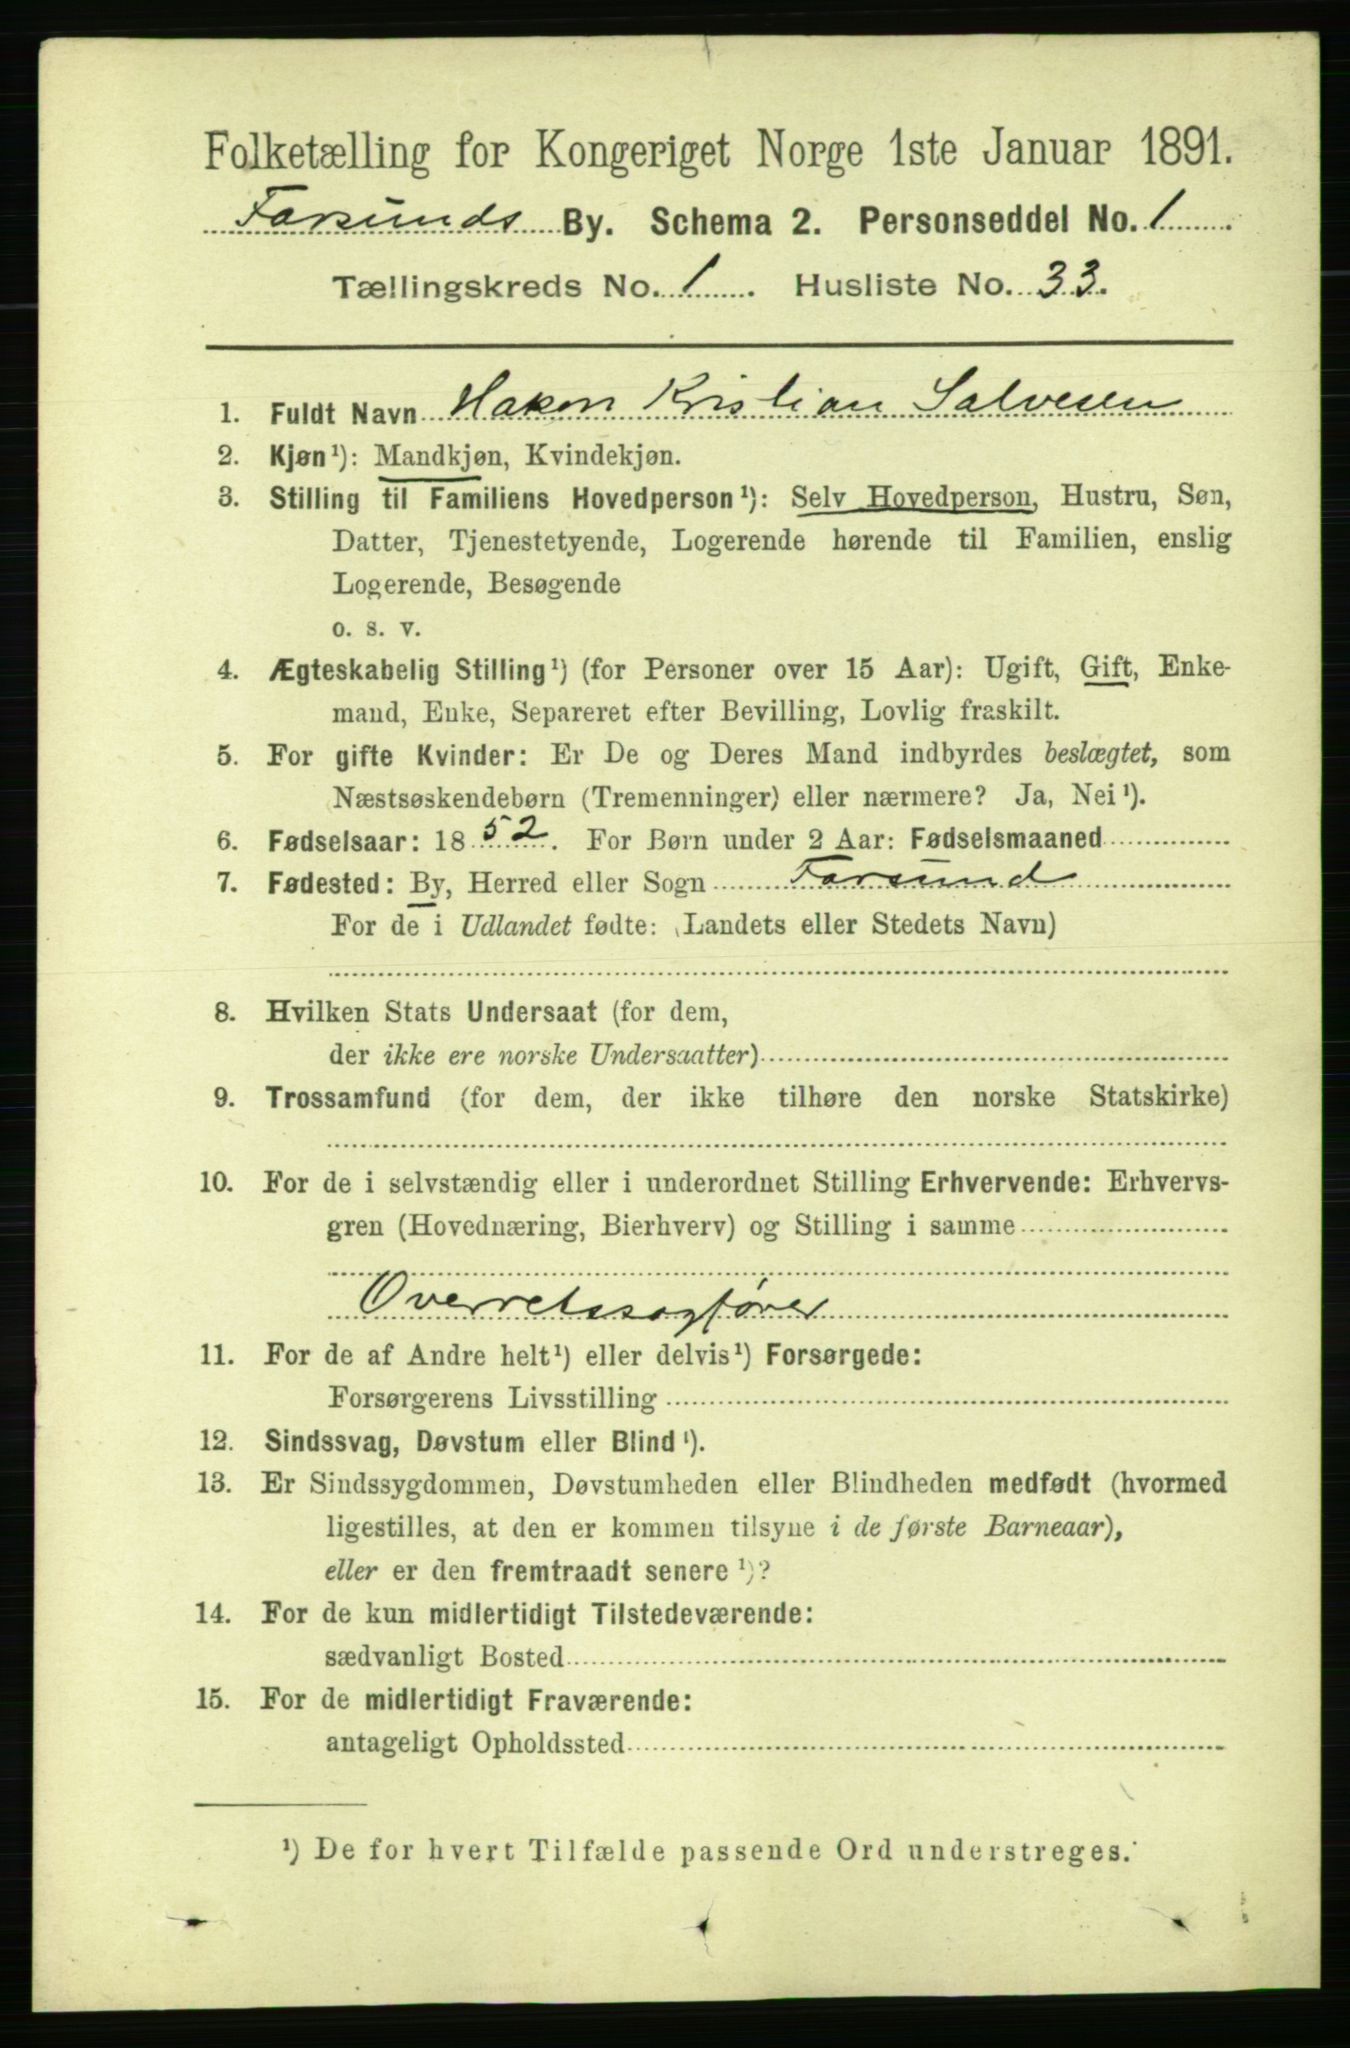 Folketælling for Kongeriget Norge 1ste Januar 1891.
Farsunds By. Schema 2. Personseddel No. 1
Tællingskreds No. 1. Husliste No. 33.
1. Fuldt Navn Hakon Kristian Salvesen
2. Kjøn¹): Mandkjøn, Kvindekjøn.
3. Stilling til Familiens Hovedperson¹): Selv Hovedperson, Hustru, Søn,
Datter, Tjenestetyende, Logerende hørende til Familien, enslig
Logerende, Besøgende
o. s. v.
4. Ægteskabelig Stilling¹) (for Personer over 15 Aar): Ugift, Gift, Enke-
mand, Enke, Separeret efter Bevilling, Lovlig fraskilt.
5. For gifte Kvinder: Er De og Deres Mand indbyrdes beslægtet, som
Næstsøskendebørn (Tremenninger) eller nærmere? Ja, Nei¹).
6. Fødselsaar: 1852. For Børn under 2 Aar: Fødselsmaaned
7. Fødested: By, Herred eller Sogn Farsund
For de i Udlandet fødte: (Landets eller Stedets Navn)
8. Hvilken Stats Undersaat (for dem,
der ikke ere norske Undersaatter)
9. Trossamfund (for dem, der ikke tilhøre den norske Statskirke)
10. For de i selvstændig eller i underordnet Stilling Erhvervende: Erhvervs-
gren (Hovednæring, Bierhverv) og Stilling i samme
Overretssagfører
11. For de af Andre helt¹) eller delvis¹) Forsørgede:
Forsørgerens Livsstilling
12. Sindssvag, Døvstum eller Blind¹).
13. Er Sindssygdommen, Døvstumheden eller Blindheden medfødt (hvormed
ligestilles, at den er kommen tilsyne i de første Barneaar),
eller er den fremtraadt senere¹)?
14. For de kun midlertidigt Tilstedeværende:
sædvanligt Bosted
15. For de midlertidigt Fraværende:
antageligt Opholdssted
¹) De for hvert Tilfælde passende Ord understreges.